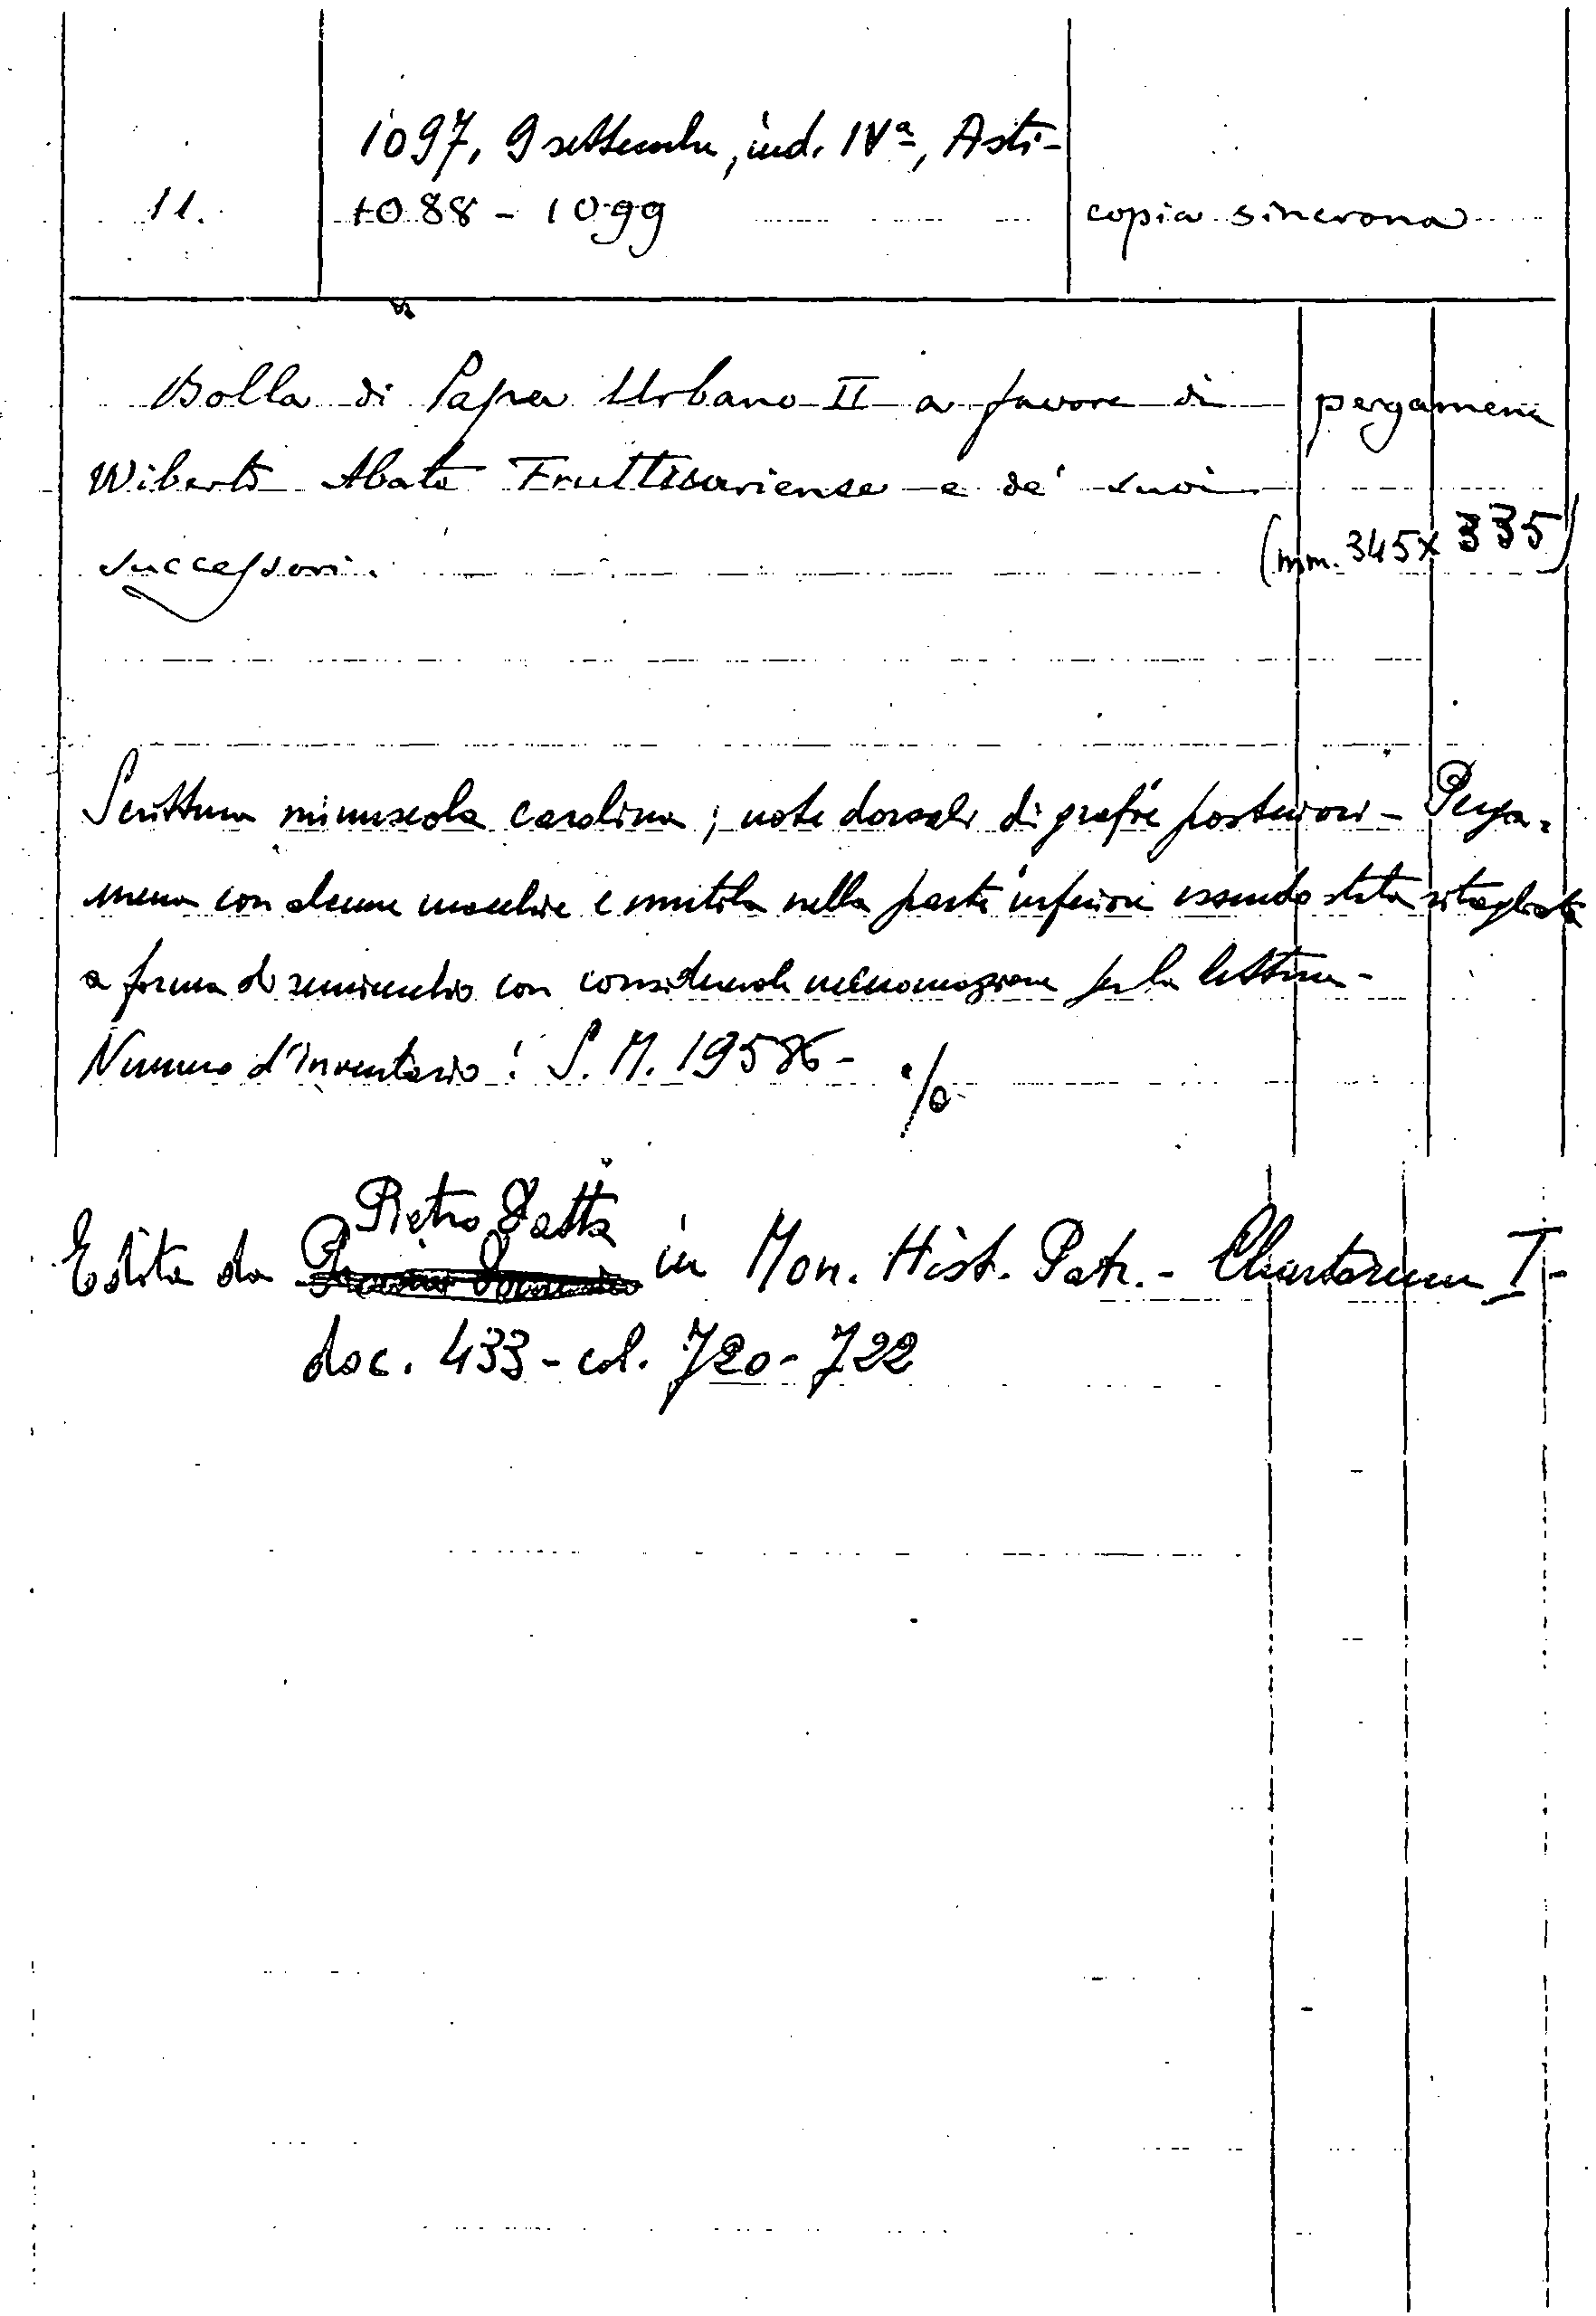 1097, 9 settembre, ind. IVª, Asti-
11. 1088 - 1099 copia sincrona
Bolla di Papa Urbano II a favore di pergamena
Wiberto Abate Fruttuariense e de' suoi
successori. (mm. 345 x 335)
Scrittura minuscola carolina; note dorsali di grafie posteriori - Perga=
mena con alcune macchie e mutila nella parte inferiore essendo stata ritagliata
a forma di semicerchio con considerevole menomazione per la lettura -
Numero d'inventario: S. M. 19586 - ./.
Pietro Datta
Edita da in Mon. Hist. Patr. - Chartarum I -
doc. 433 - col. 720 - 722